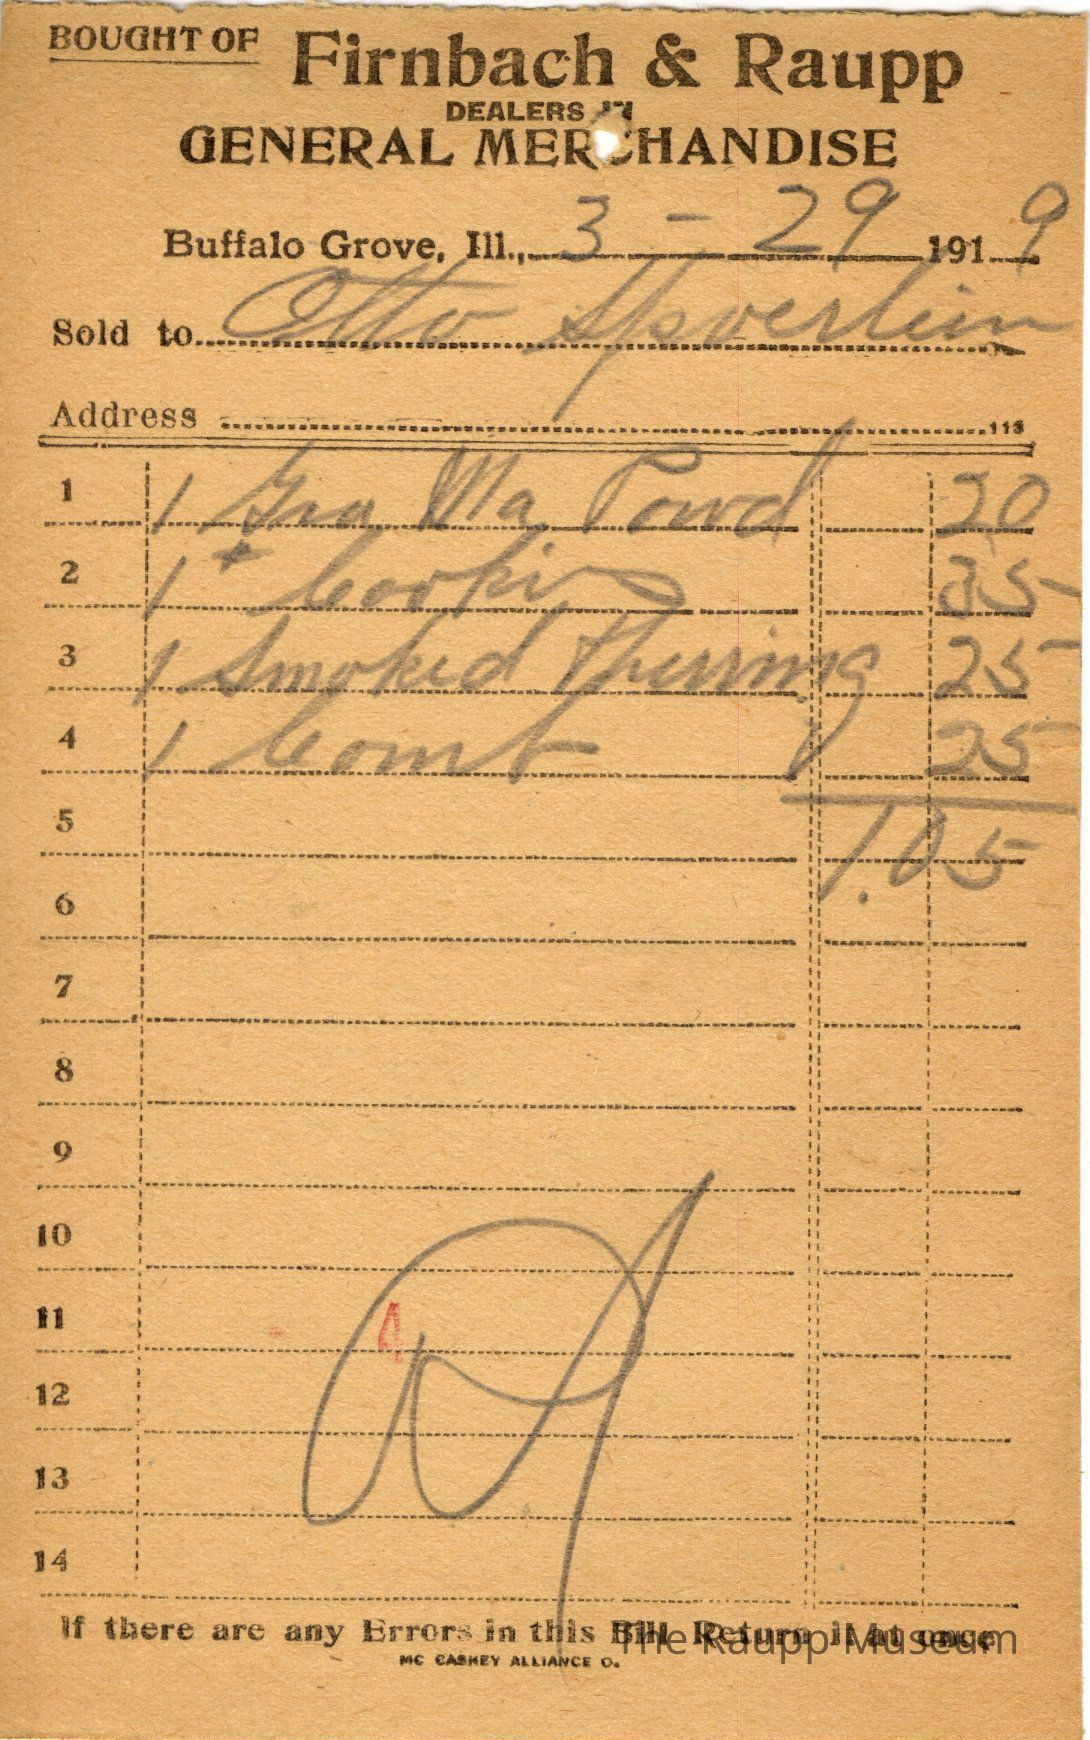 BOUGHT OF Firnbach & Raupp
DEALERS IN
GENERAL MERCHANDISE
Buffalo Grove, Ill., 3 - 29 1919
Sold to Otto Spoerlein
Address
113
1 1 Gra Ma Powd 20
2 1 # Cookies 35
3 1 Smoked Herring 25
4 1 Comb 25
5 1.05
6
7
8
9
10
11
4
12
13
14
If there are any Errors in this Bill Return it at once
The Raupp Museum
MC CASKEY ALLIANCE O.